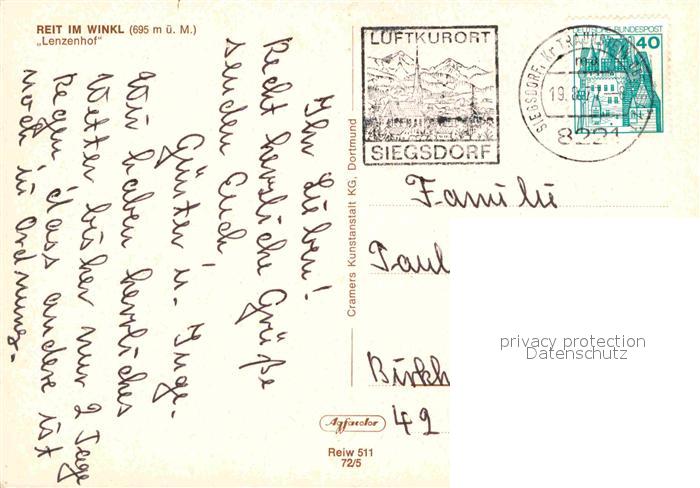 REIT IM WINKL (695 m ü. M.)
„Lenzenhof“
Ihr Lieben!
Recht herzliche Grüße
senden Euch
Günter u. Inge.
Wir haben herrliches
Wetter, bisher nur 2 Tage
Regen, dass andere ist
noch in Ordnung.
Cramers Kunstanstalt KG, Dortmund
LUFTKURORT
SIEGSDORF
DEUTSCHE BUNDESPOST
40
SIEGSDORF, Kr TRAUNSTEIN
19.8.
8221
Familie
Paul
Birkh
49
privacy protection
Datenschutz
Agfacolor
Reiw 511
72/5